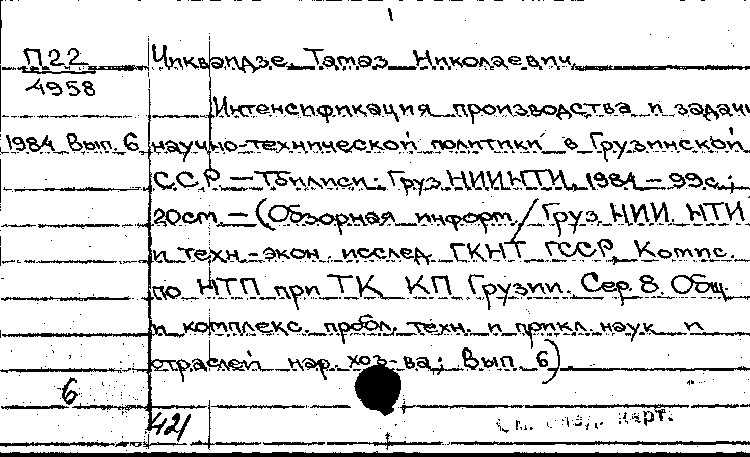 1
П22 Чикваидзе Тамаз Николаевич
4958
Интенсификация производства и задачи
1984 Вып. 6 научно-технической политики в Грузинской
ССР. — Тбилиси: Груз.НИИНТИ, 1984 — 99с.;
20см. — (Обзорная информ. / Груз. НИИ НТИ
и техн.-экон. исслед. ГКНТ ГССР, Компс.
по НТП при ТК КП Грузии. Сер. 8. Общ.
и комплекс. пробл. техн. и прикл. наук и
отраслей нар. хоз-ва; Вып. 6).
6
421
См. след. карт.